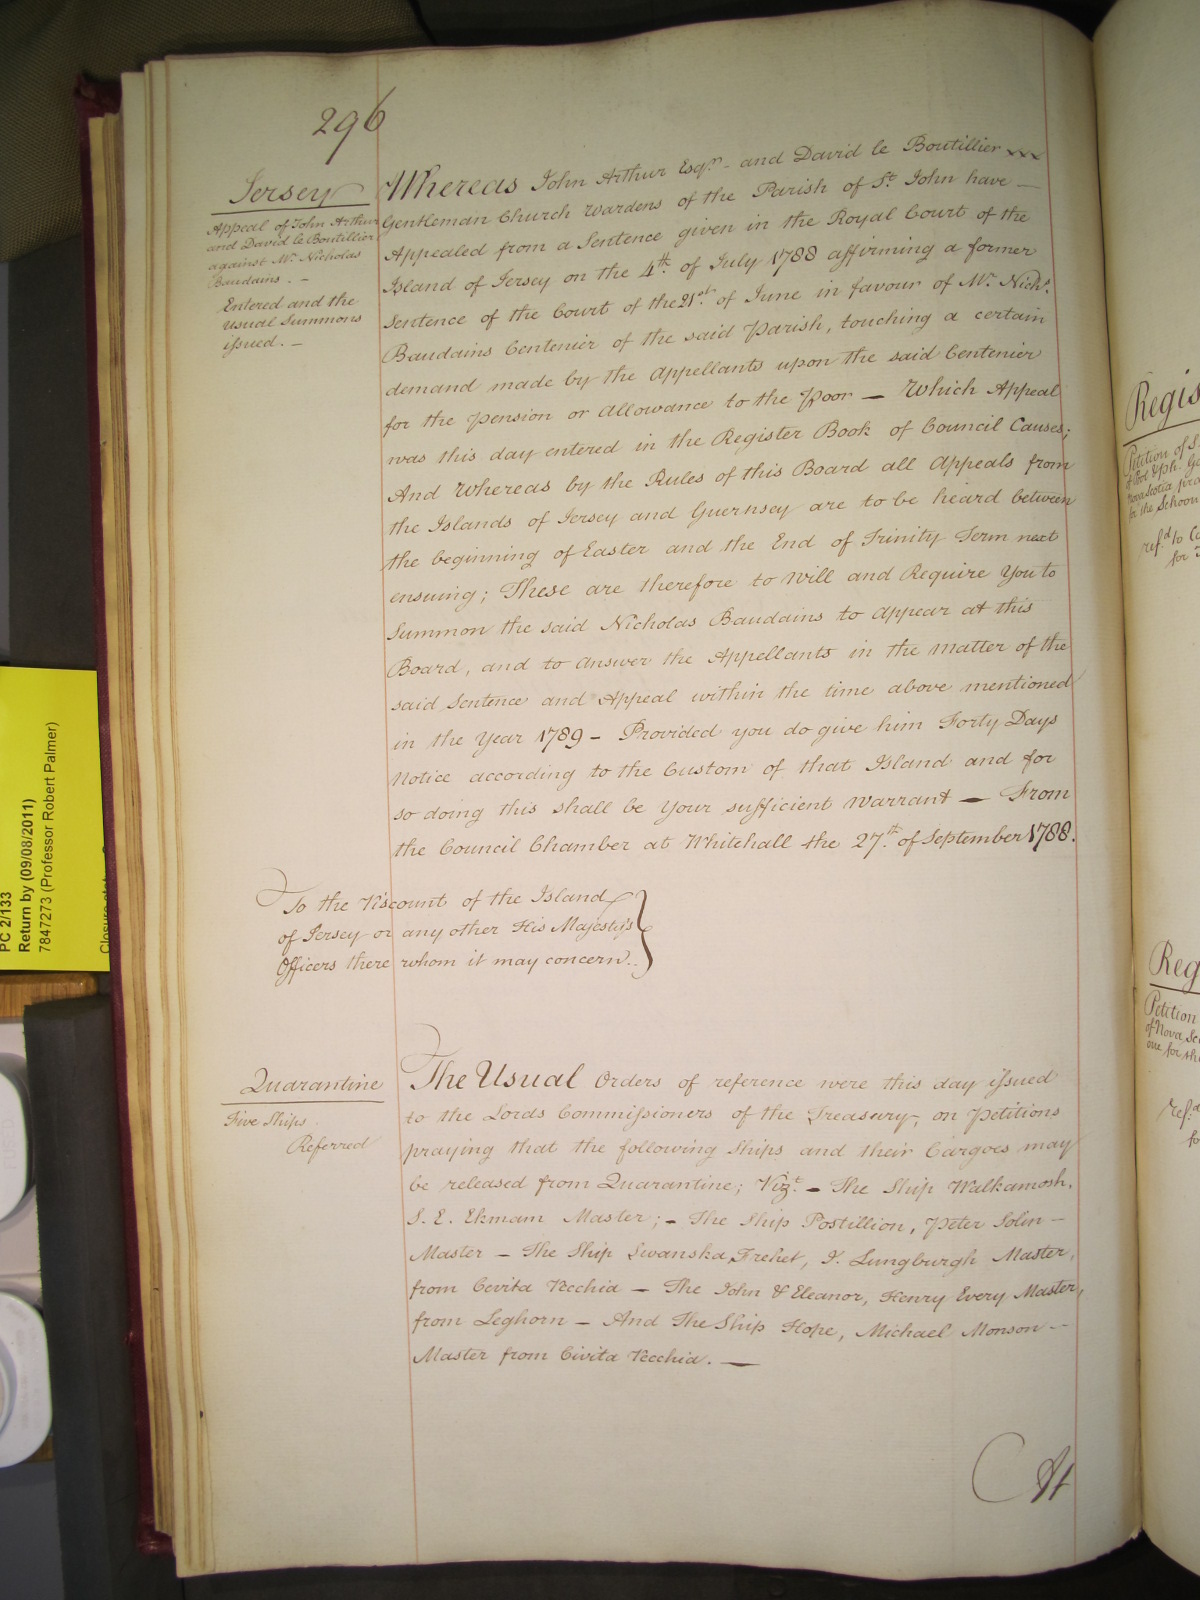 296
Jersey
Appeal of John Arthur
and David le Boutillier
against Mr. Nicholas
Baudains. -
Entered and the
usual Summons
issued. -
Whereas John Arthur Esqr. - and David le Boutillier xxx
Gentleman Church Wardens of the Parish of St. John have -
Appealed from a Sentence given in the Royal Court of the
Island of Jersey on the 4th. of July 1788 affirming a former
Sentence of the Court of the 21st. of June in favour of Mr. Nichs.
Baudains Centenier of the said Parish, touching a certain
demand made by the Appellants upon the said Centenier
for the pension or allowance to the Poor — Which Appeal
was this day entered in the Register Book of Council Causes;
And Whereas by the Rules of this Board all Appeals from
the Islands of Jersey and Guernsey are to be heard between
the beginning of Easter and the End of Trinity Term next
ensuing; These are therefore to Will and Require You to
Summon the said Nicholas Baudains to appear at this
Board, and to answer the Appellants in the matter of the
said Sentence and Appeal within the time above mentioned
in the Year 1789 - Provided you do give him Forty Days
Notice according to the Custom of that Island and for
so doing this shall be Your sufficient Warrant — From
the Council Chamber at Whitehall the 27th. of September 1788.
To the Viscount of the Island
of Jersey or any other His Majesty's
Officers there whom it may concern..
Quarantine
Five Ships
Referred
The Usual Orders of reference were this day issued
to the Lords Commissioners of the Treasury, on Petitions
praying that the following Ships and their Cargoes may
be released from Quarantine; Vizt. - The Ship Walkamosh,
S. E. Ekmam Master; - The Ship Postillion, Peter Solin -
Master - The Ship Swanska Frehet, I. Lungburgh Master,
from Cevita Vecchia - The John & Eleanor, Henry Every Master,
from Leghorn - And The Ship Hope, Michael Monson -
Master from Civita Vecchia. —
At
PC 2/133
Return by (09/08/2011)
7847273 (Professor Robert Palmer)
Regis
Petition of S.
for the Schoon
refd. to Co
for
Reg
Petition
of Nova Sc
one for the
refd
fo